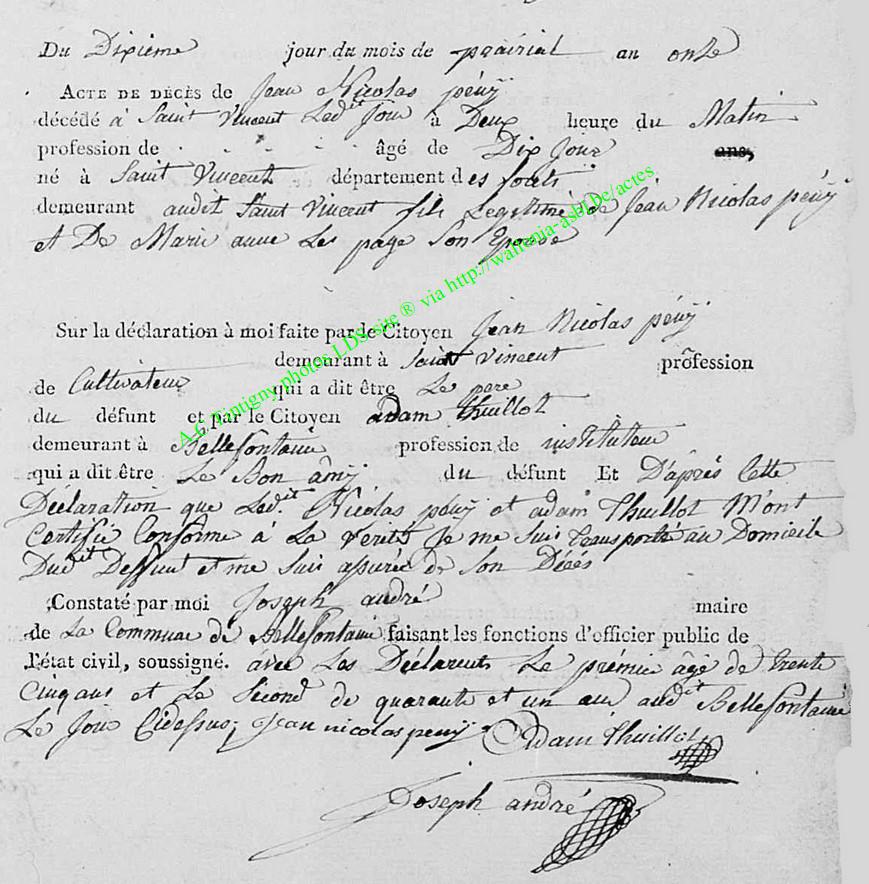 Du Dixième jour du mois de prairial an onze
ACTE DE DÉCÈS de Jean Nicolas péuÿ
décédé à Saint Vincent Ledit Jour à Deux heure du Matin
profession de - - - - - âgé de Dix Jour ans,
né à Saint Vincent département des forêts
demeurant audit Saint Vincent fils Legitime de Jean Nicolas péuÿ
et De Marie anne Le page Son Epouse
Sur la déclaration à moi faite par le Citoyen Jean Nicolas péuÿ
demeurant à Saint Vincent profession
de Cultivateur qui a dit être Le pere
du défunt et par le Citoyen adam Thuillot
demeurant à Bellefontaine profession de instituteur
qui a dit être Le Bon âmÿ du défunt Et D'après Cette
Déclaration que Ledit Nicolas péuÿ et adam Thuillot M'ont
Certifié Conforme à La Verité Je me Suis transporté au Domicile
Dudit Deffunt et me Suis assurée de Son Décés
Constaté par moi Joseph andré maire
de La Commune de Bellefontaine faisant les fonctions d'officier public de
l'état civil, soussigné. avec Les Déclarents Le prémie âgé de trente
Cinq ans et Le Second de quarante et un an audit Bellefontaine
Le Jour Cidessus; Jean nicolas peuÿ Adam Thuillot
Joseph andré
A.C. Tintigny photos LDS site ® via http://walfrenja-asbl.be/actes